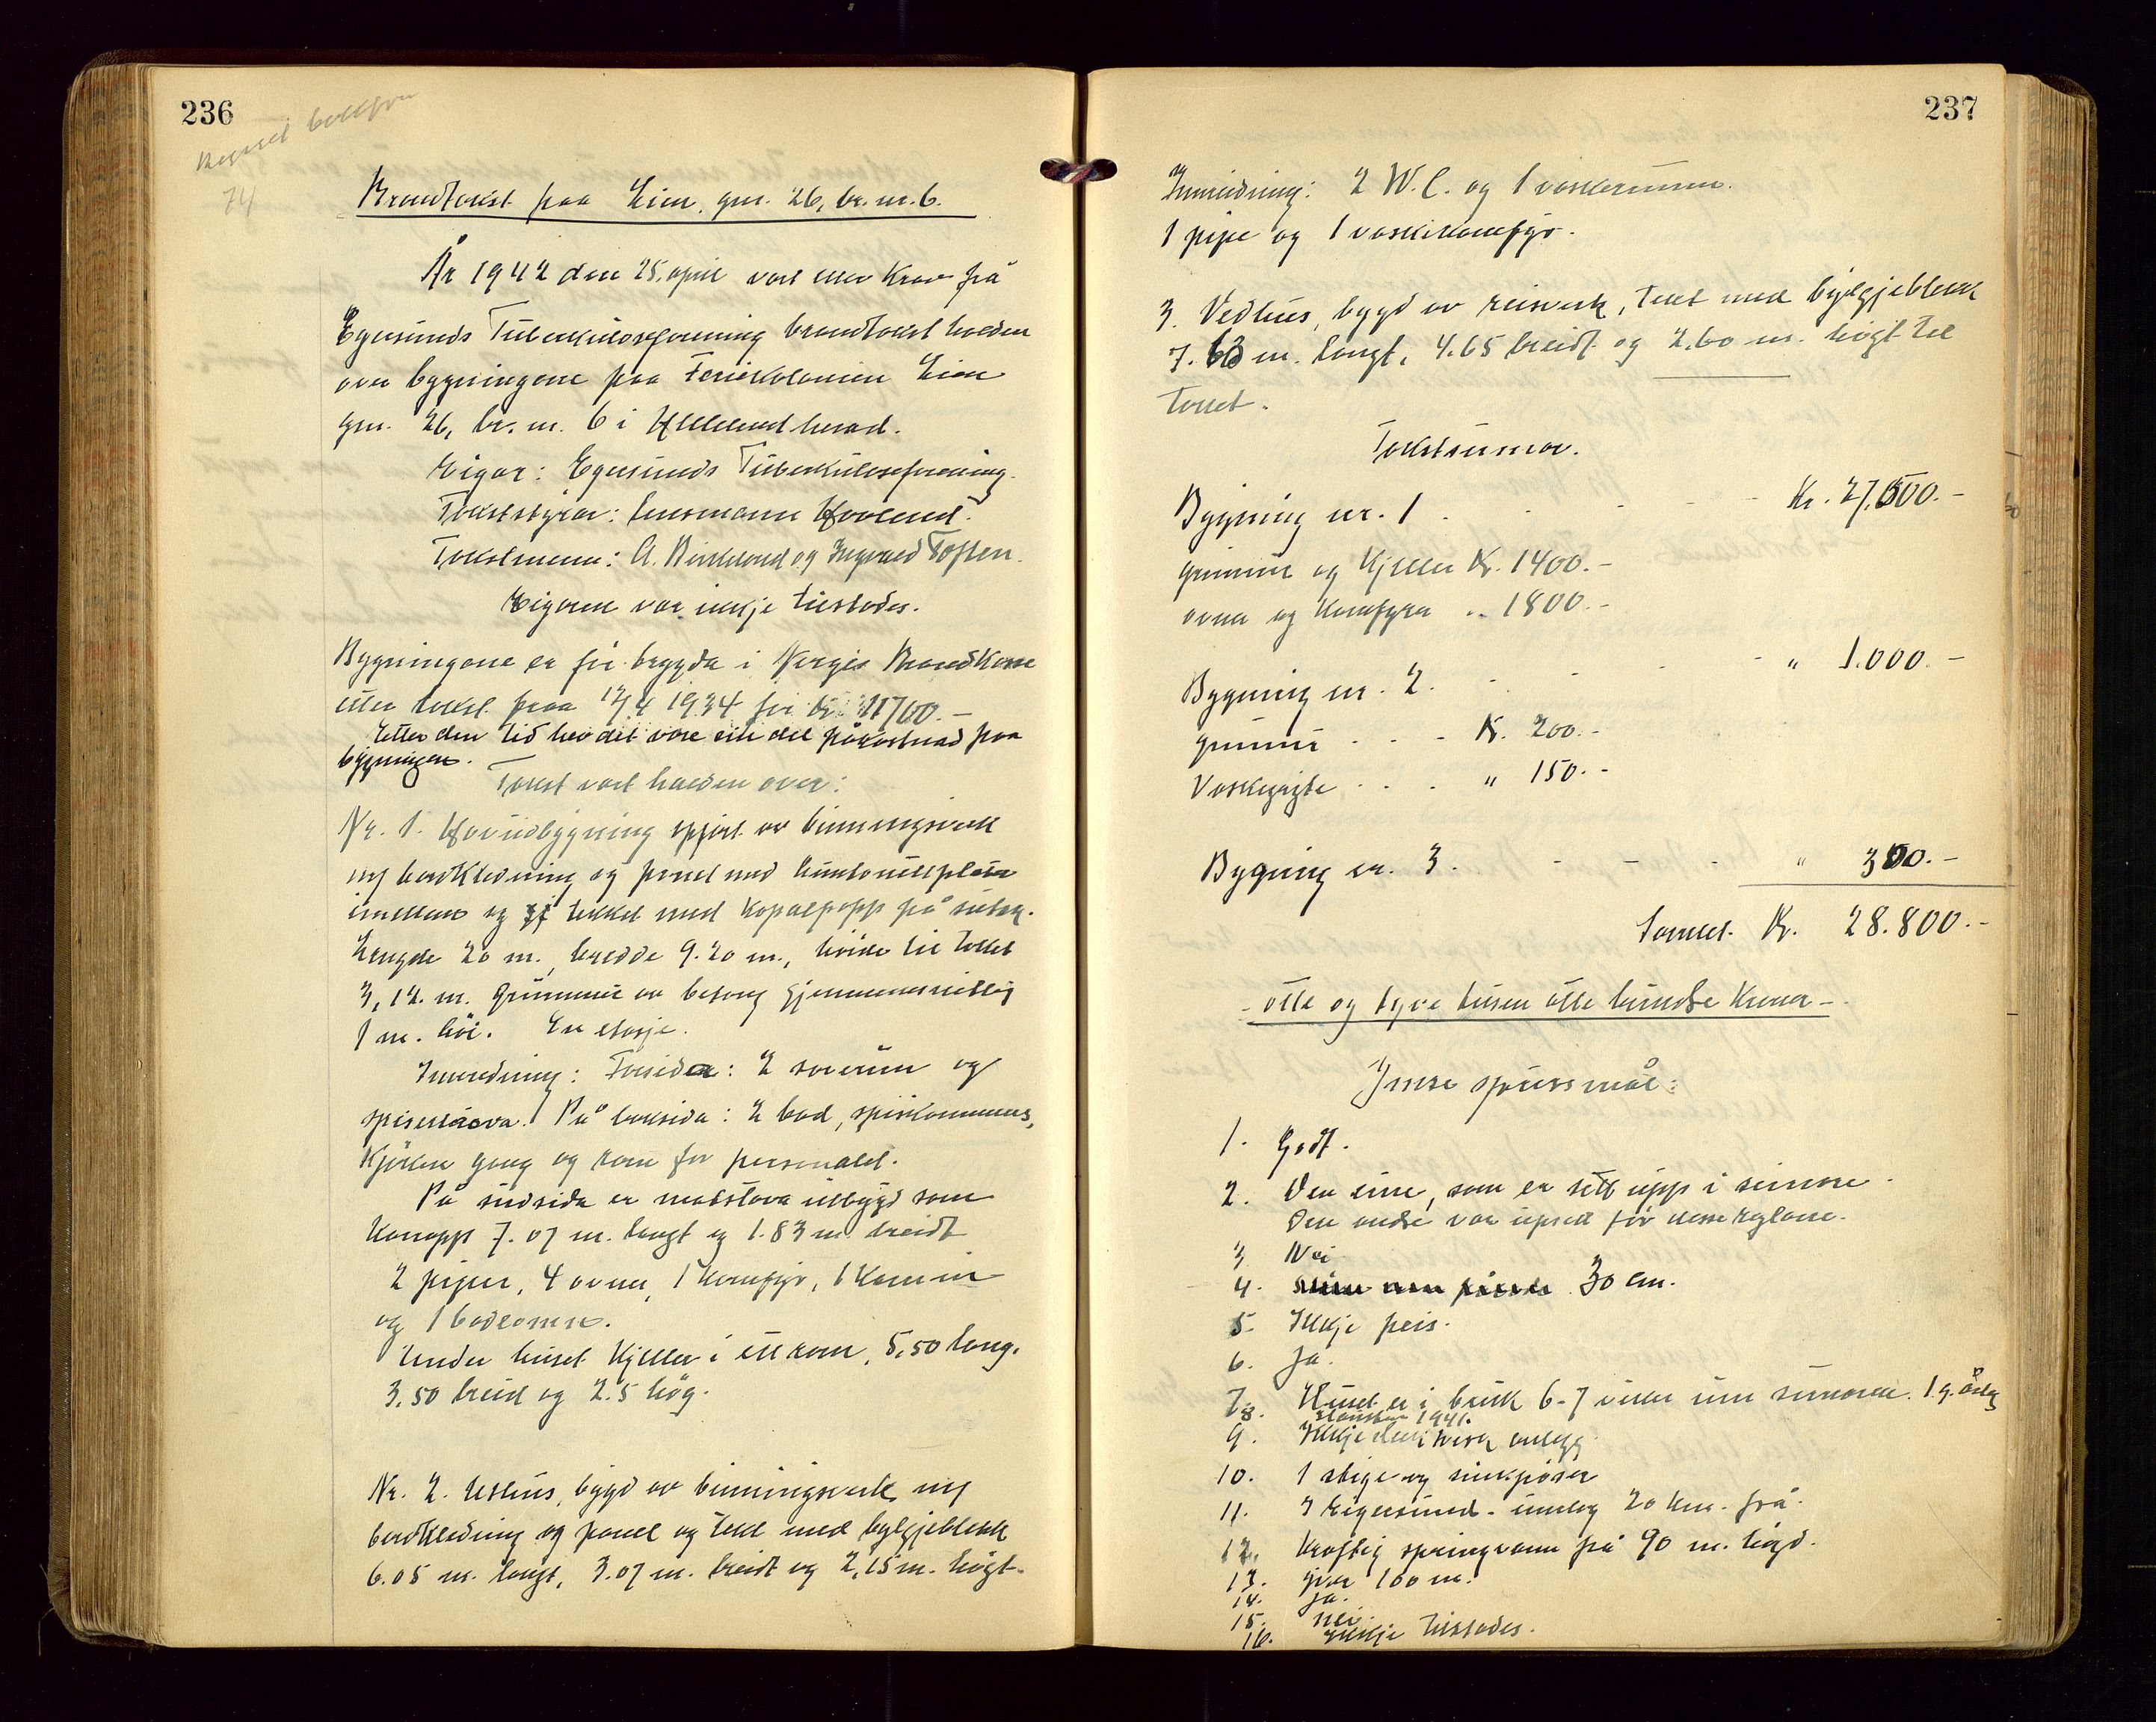 236
74
Brandtakst paa Lien, gnr. 26, br. nr. 6.
År 1942 den 25. april vart etter krav frå
Egersunds Tuberkuloseforening brandtakst halden
over bygningane paa Feriekolonien Lien
gnr. 26, br. nr. 6 i Helleland herad.
Eigar: Egersunds Tuberkuloseforening.
Takststyrar: lensmann Hovland.
Takstmenn: A. Birkeland og Ingvald Toften.
Eigaren var ikkje tilstades.
Bygningane er før trygda i Norges Brandkasse
etter takst paa 12/4 1934 for kr.
Etter den tid hev det vore ein del påkostnad paa
bygningen.
Takst vart halden over:
Nr. 1. Hovudbygning oppført av binningsverk
m/ bordkledning og panel med
imellan og tekket med kopalpapp på sutak.
Lengde 20 m., bredde 9.20 m., höide til taket
3,12. m. Grunnmur av betong gjennomsnittlig
1 m. höi. En etasje.
Innredning: Forsida: 2 soverum og
spisestova. På baksida: 2 bad, spiskammers,
kjøken gang og rom for personalet.
På sudsida er matstova utbygd som
karnapp 7.07 m. langt og 1.83 m. breidt
2 piper, 4 ovnar, 1 komfyr, 1 kamin
og 1 badeomn.
Under huset kjeller i ett rom, 5,50 lang,
3,50 breid og 2.5 høg.
Nr. 2. Uthus, bygd av binningsverk m/
bordkledning og panel og tekt med bylgjeblekk
6.05 m. langt, 3.07 m. breidt og 2,15 m. høgt.
237
Innreidning: 2 W.C. og 1 vaskerum.
1 pipe og 1 vaskekomfyr.
3. Vedhus, bygd av reisverk, tekt med bylgjeblekk
7. m. langt, 4.65 breidt og 2.60 m. högt til
taket.
Takstsumar.
Bygning nr. 1 . . . - - Kr. 27.500.-
grunnmur og kjeller Kr. 1400.-
ovnar og komfyrar " 1800.-
Bygning nr. 2. - - - - " 1.000.-
grunnmur . . - Kr. 200.-
Vaskegryte . . . " 150.-
Bygning nr. 3. - - - " 300.-
Samlet Kr. 28.800.-
- åtte og tyve tusen åtte hundre kroner -
Ymse spursmål:
1. Godt.
2. Den eine, som er sett upp i seinare.
Den andre var uppsett før desse reglane.
3 Nei
4. 30 cm.
5. Ikkje peis.
6. Ja.
7. Huset er i bruk 6-7 vikor um sumaren.
8. 1941.
9. Ikkje elektrisk anlegg
10. 1 stige og
11. I Eigersund - umlag 20 km. frå.
12. Kraftig springvann på 90 m. høgd.
13. yver 100 m.
14. Ja.
15. Nei.
16. Ikkje tilstades.